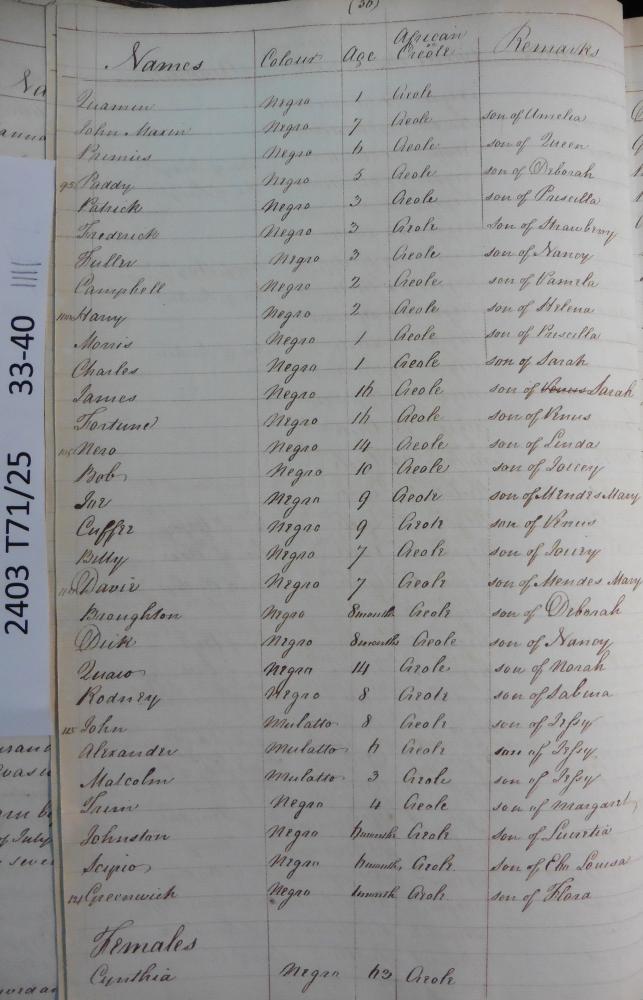 (36)
Names Colour Age African or Creole Remarks
Quamin Negro 1 Creole
John Maxin Negro 7 Creole son of Amelia
Primus Negro 6 Creole son of Queen
95 Paddy Negro 5 Creole son of Deborah
Patrick Negro 3 Creole son of Priscilla
Frederick Negro 3 Creole son of Strawberry
Fuller Negro 3 Creole son of Nancy
Campbell Negro 2 Creole son of Pamela
100 Harry Negro 2 Creole son of Helena
Morris Negro 1 Creole son of Priscilla
Charles Negro 1 Creole son of Sarah
James Negro 16 Creole son of Venus Sarah
Fortune Negro 16 Creole son of Venus
105 Nero Negro 14 Creole son of Linda
Bob Negro 10 Creole son of
Joe Negro 9 Creole son of Mendes Mary
Cuffee Negro 9 Creole son of Venus
Billy Negro 7 Creole son of
110 Davie Negro 7 Creole son of Mendes Mary
Broughton Negro 8 months Creole son of Deborah
Dick Negro 8 months Creole son of Nancy
Quaw Negro 14 Creole son of Norah
Rodney Negro 8 Creole son of Sabina
115 John Mulatto 8 Creole son of Jessy
Alexander Mulatto 6 Creole son of Jessy
Malcolm Mulatto 3 Creole son of Jessy
Negro 4 Creole son of Margaret
Johnston Negro 6 months Creole son of Lucretia
Scipio Negro 6 months Creole son of Louisa
121 Greenwich Negro 1 month Creole son of Flora
Females
Cynthia Negro 63 Creole
2403 T71/25 33-40